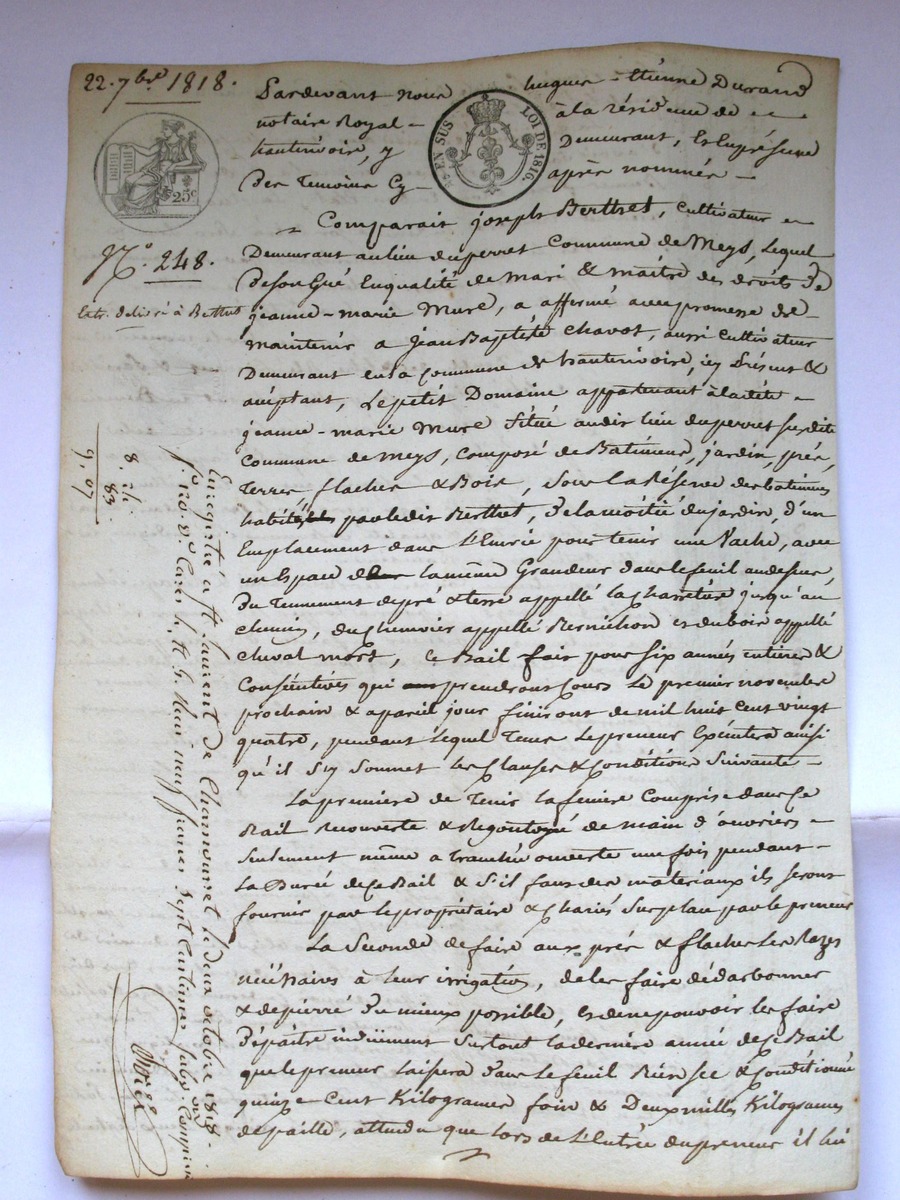 22. 7bre 1818.
Pardevant nous hugues-Etienne Durand
notaire Royal - à la résidence de
hauterivoire, y Demeurant, & en présence
Des Temoins Cy- après nommés -
EN SUS LOI DE 1816.
25c
Comparait joseph Berthet, Cultivateur
Demeurant au lieu du perret Commune de Meys, lequel
De son Gré En qualité de Mari & maitre des droits de
jeanne-marie Mure, a affermé avec promesse de
maintenir a jean Baptiste Chavot, aussi Cultivateur
Demeurant en la Commune de hauterivoire, icy présent &
acceptant, Le petit Domaine appartenant à ladite
jeanne-marie Mure Situé audit lieu du perret susdite
Commune de Meys, Composé de Batiments, jardin, prés,
Terres, flaches & Bois, sous la Réserve des batiments
habités par ledit Berthet, De la moitié du jardin, d'un
Emplacement dans l'Ecurie pour tenir une Vache, avec
un Espace de la même Grandeur dans le feuil au dessus,
Du Tennement de pré & terre appellé la Charreture jusqu'au
chemin, du Chenevier appellé Bernichon et du bois appellé
Cheval mort, Ce Bail fait pour six années entieres &
Consécutives qui prendront Cours le premier novembre
prochain & a pareil jour finiront de mil huit Cent vingt
quatre, pendant lequel Tems le preneur Exécutera ainsi
qu'il s'y soumet les Clauses & Conditions Suivantes -
La premiere de Tenir la Comprise dans Ce
Bail Recouverte & Regoutoyé de main d'ouvriers
Seulement même a tranchée ouverte une fois pendant
La Durée de Ce Bail & s'il faut des materiaux ils seront
fournis par le propriétaire & Chariés Sur place par le preneur
La Seconde de faire aux prés & flaches Les Razes
nécéssaires à leur irrigation, de les faire dédarbonner
& depierré Du mieux possible, et de ne pouvoir les faire
Dépaitre induement Surtout la derniere année de Ce Bail
que le preneur laissera Dans le feuil Bien sec & Conditionné
quinze Cent Kilogrames foin & Deux milles Kilogrames
de paille, attendu que lors de l'Entrée du preneur il lui
N.° 248.
Extr. Délivré à Berthet
8. 24
83.
9. 07
Enregistré à St. Laurent de Chamousset le deux octobre 1818.
f.° 110 V.° Cases 4, & 5. Reçu neuf francs Sept Centimes Subv. Comprise